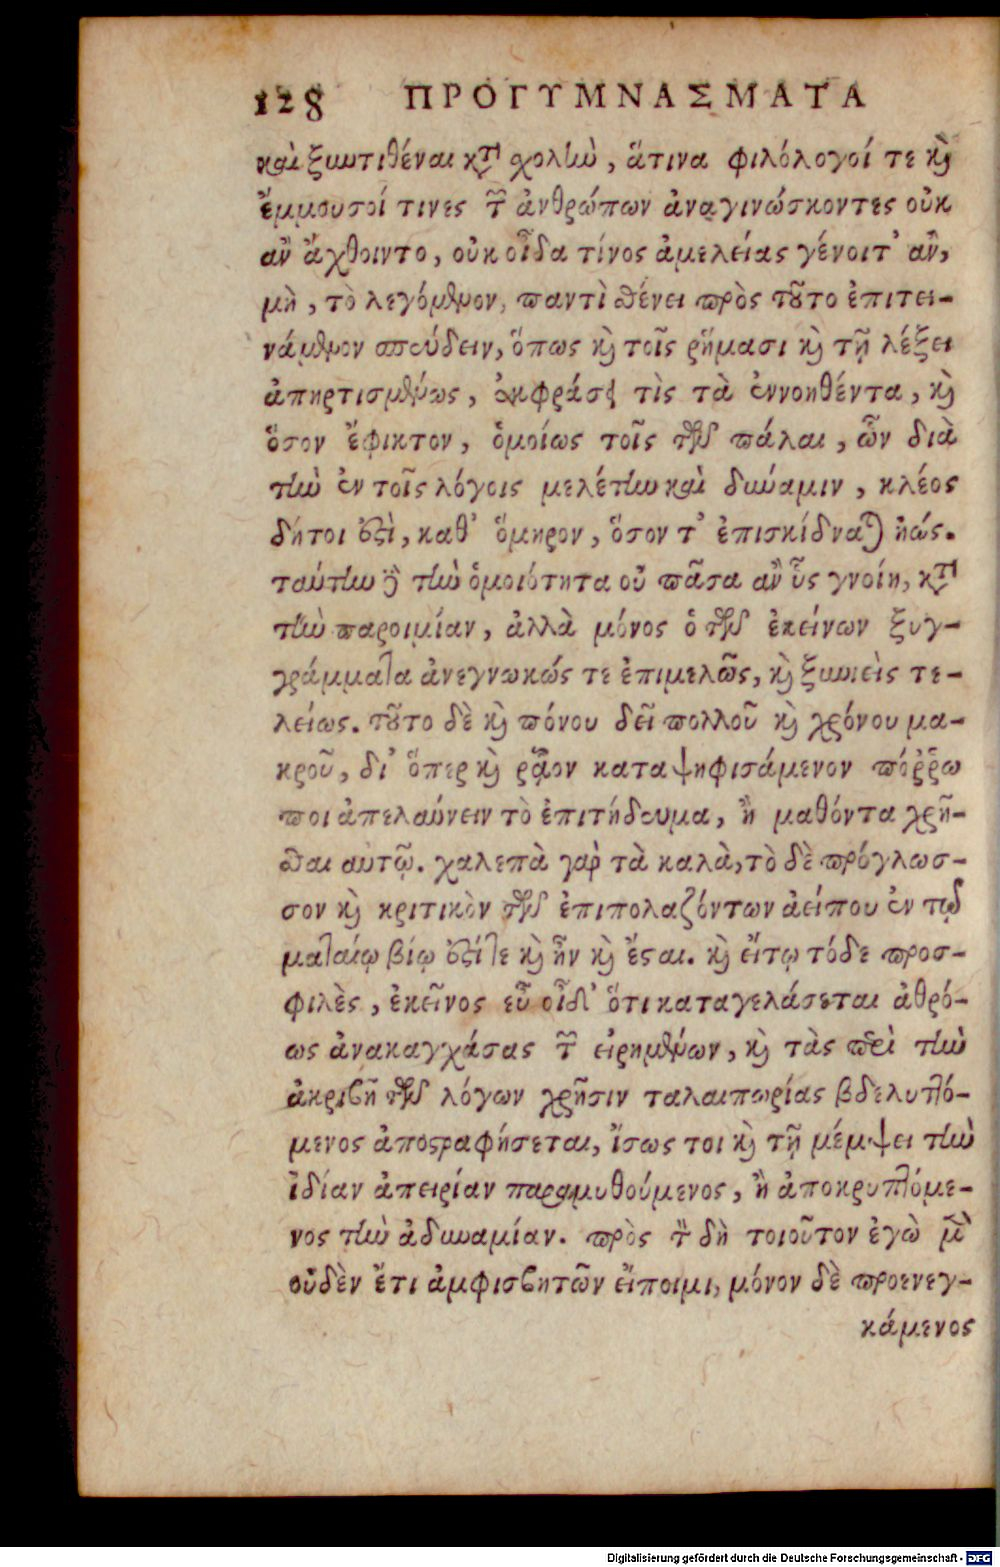 128 ΠΡΟΓΥΜΝΑΣΜΑΤΑ
καὶ ξυντιθέναι κτ̀ χολὴν, ἅτινα φιλόλογοί τε κὶ
ἔμμουσοί τινες τ̃ ἀνθρώπων ἀναγινώσκοντες οὐκ
ἂν ἄχθοιντο, οὐκ οἶδα τίνος ἀμελείας γένοιτ' ἂν,
μὴ, τὸ λεγόμενον, παντὶ σθένει πρὸς τοῦτο ἐπιτει-
νάμενον σπεύδειν, ὅπως κὶ τοῖς ῥήμασι κὶ τῇ λέξει
ἀπηρτισμένως, ἐκφράσῃ τὶς τὰ ἐννοηθέντα, κὶ
ὅσον ἔφικτον, ὁμοίως τοῖς τῶν πάλαι, ὧν διὰ
τὴν ἐν τοῖς λόγοις μελέτην καὶ δύναμιν, κλέος
δήτοι ἐςὶ, καθ' ὅμηρον, ὅσον τ' ἐπισκίδναται ἠώς.
ταύτην γὸ τὴν ὁμοιότητα οὐ πᾶσα ἂν ὗς γνοίη, κτ̀
τὴν παροιμίαν, ἀλλὰ μόνος ὁ τῶν ἐκείνων ξυγ-
γράμματα ἀνεγνωκώς τε ἐπιμελῶς, κὶ ξυνιεὶς τε-
λείως. τοῦτο δὲ κὶ πόνου δεῖ πολλοῦ κὶ χρόνου μα-
κροῦ, δι' ὅπερ κὶ ρᾷον καταψηφισάμενον πόῤῥω
ποι ἀπελαύνειν τὸ ἐπιτήδευμα, ἢ μαθόντα χρῆ-
σθαι αὐτῷ. χαλεπὰ γὰρ τὰ καλὰ, τὸ δὲ πρόγλωσ-
σον κὶ κριτικὸν τῶν ἐπιπολαζόντων ἀείπου ἐν τῷ
ματαίῳ βίῳ ἐςί τε κὶ ἦν κὶ ἔςαι. κὶ εἴτῳ τόδε προσ-
φιλὲς, ἐκεῖνος εὖ οἶδ' ὅτι καταγελάσεται ἀθρό-
ως ἀνακαγχάσας τ̃ εἰρημένων, κὶ τὰς περὶ τὴν
ἀκριβῆ τῶν λόγων χρῆσιν ταλαιπωρίας βδελυττό-
μενος ἀποςραφήσεται, ἴσως τοι κὶ τῇ μέμψει τὴν
ἰδίαν ἀπειρίαν παραμυθούμενος, ἢ ἀποκρυπτόμε-
νος τὴν ἀδυναμίαν. πρὸς τ̀ δὴ τοιοῦτον ἐγὼ μ̀
οὐδὲν ἔτι ἀμφισβητῶν εἴποιμι, μόνον δὲ προενεγ-
κάμενος
Digitalisierung gefördert durch die Deutsche Forschungsgemeinschaft - DFG